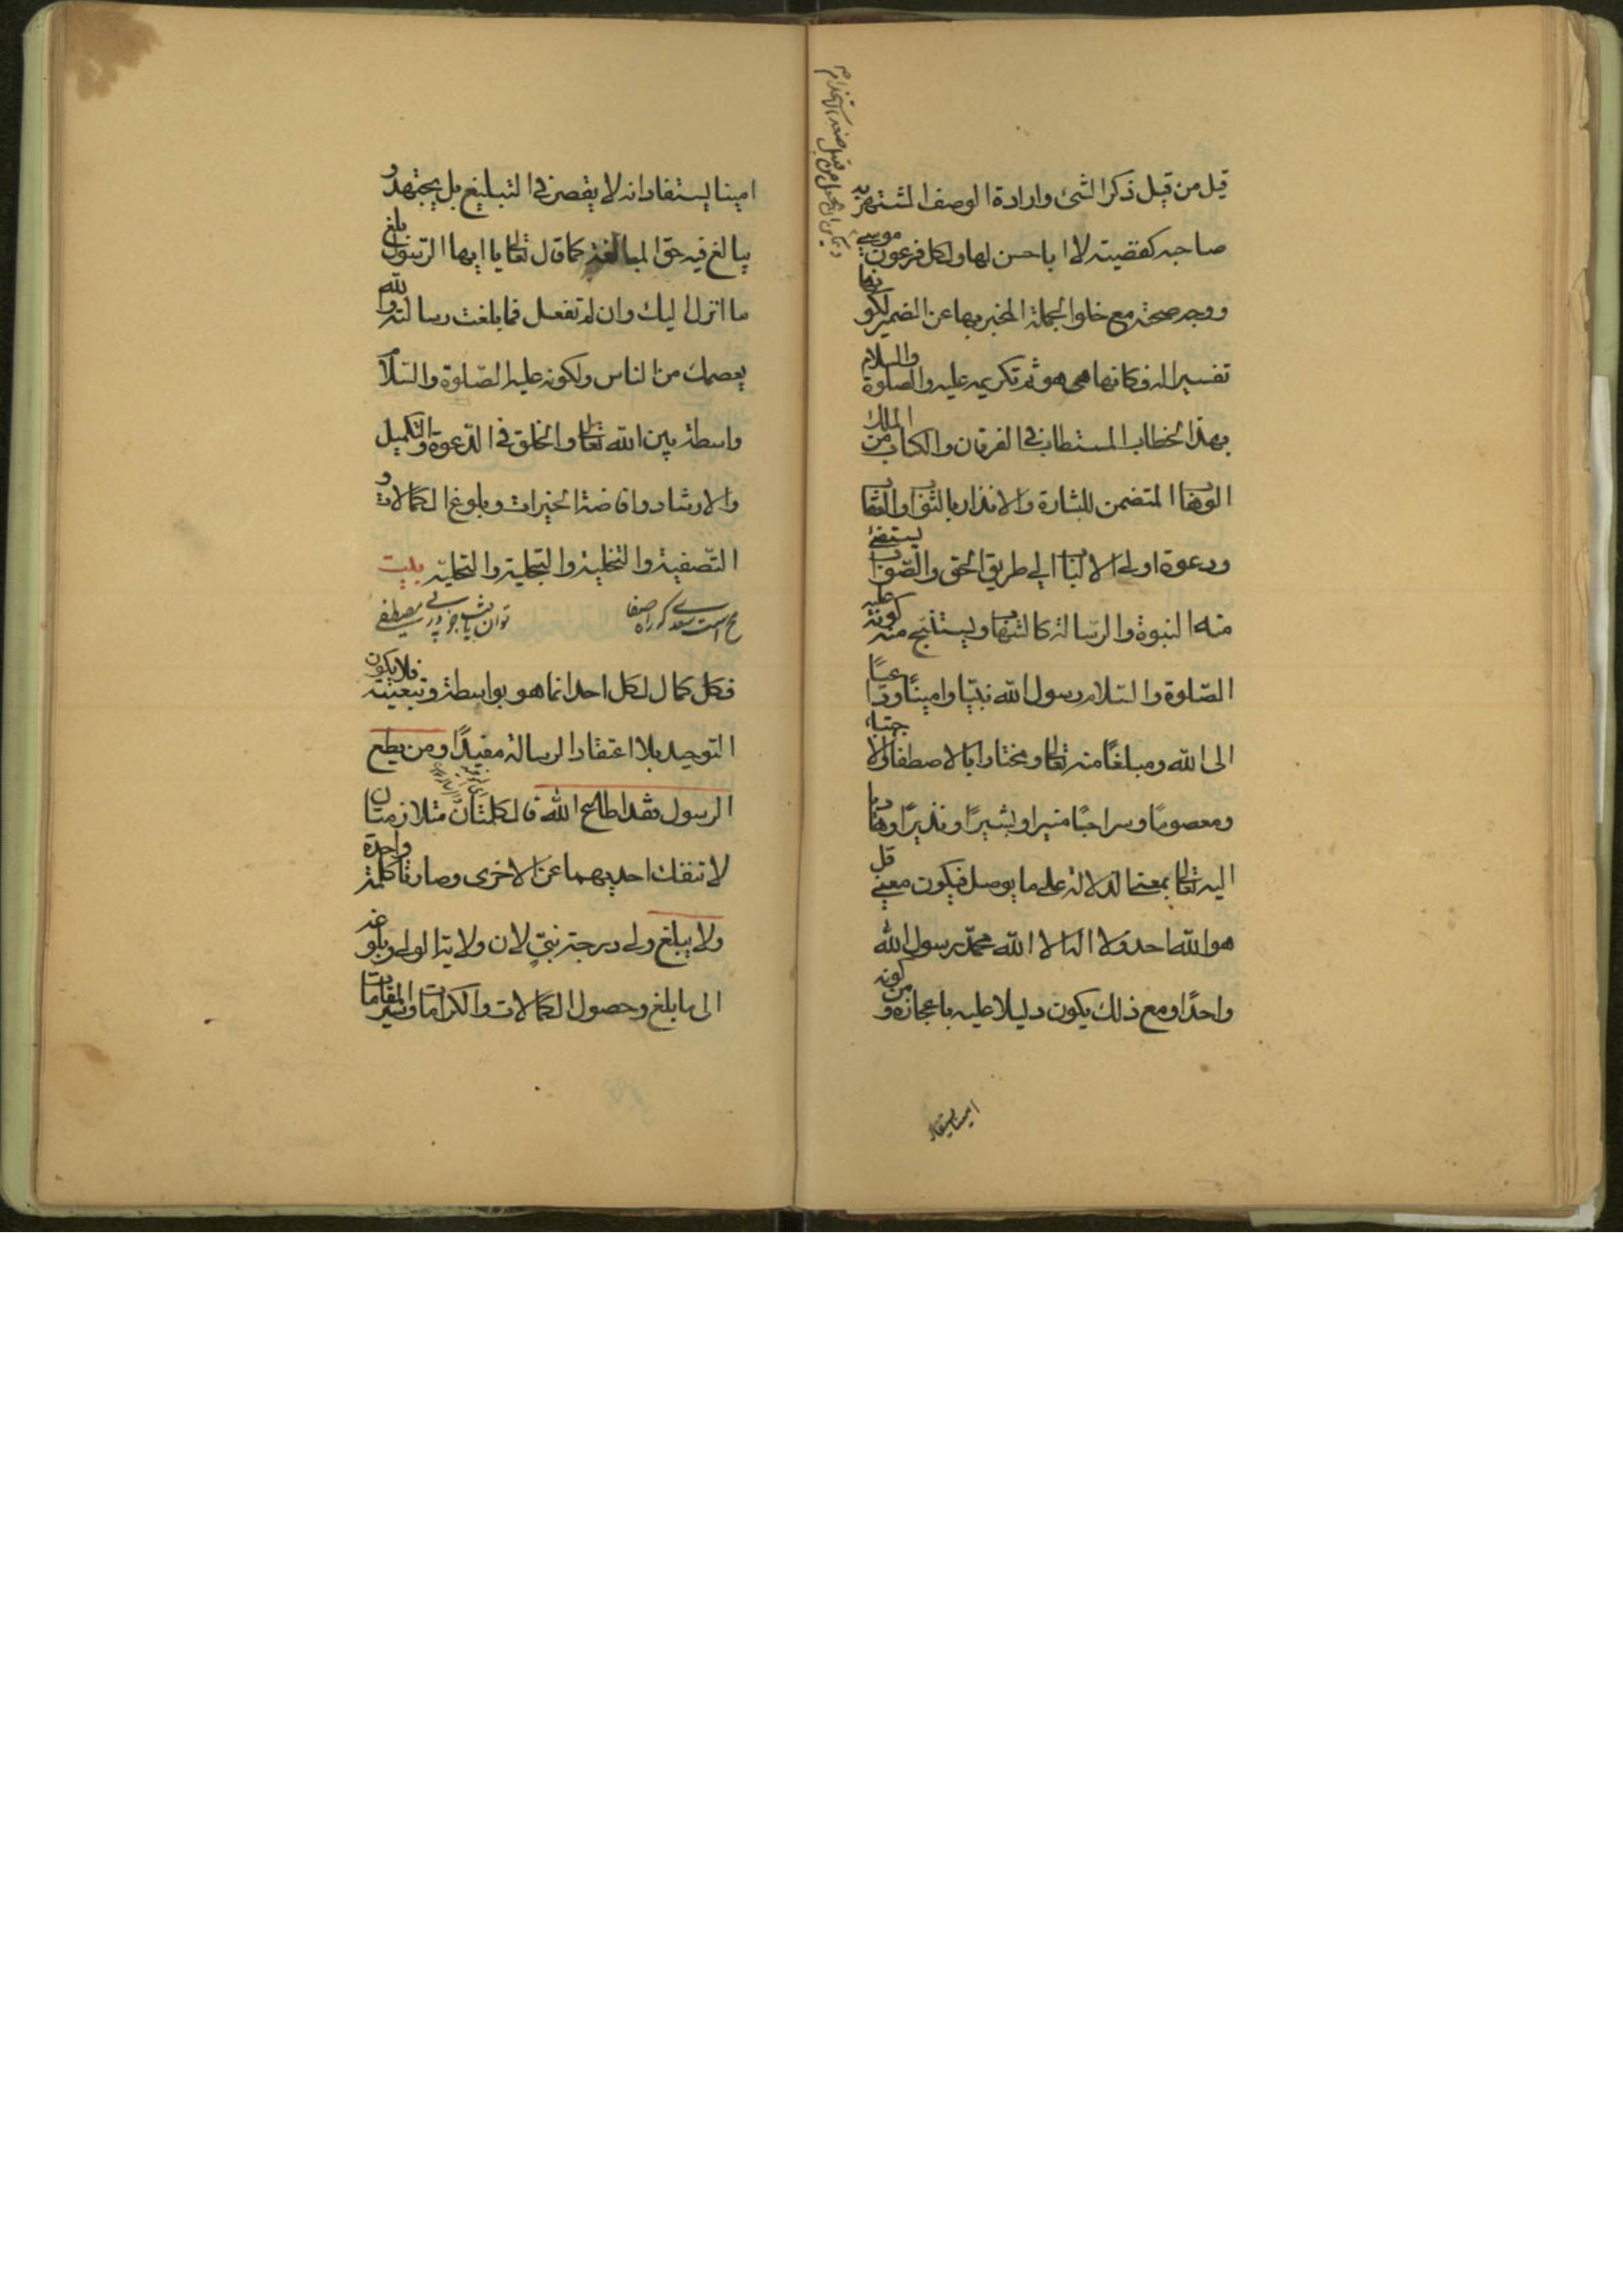 قيل من قبيل ذكر الشئ وارادة الوصف المشتهر به
صاحبه كقضية لا ابا حسن لها ولكل فرعون موسى
ووجه صحته مع خلو الجملة المخبر بها عن الضمير لكونها
تفسيرا له فكانها هى هو ثم تكريمه عليه والصلوة والسلام
بهذا الخطاب المستطاب فى الفرقان والكتاب من الملك
الوهاب المتضمن للبشارة والانذار بالثواب والعقاب
ودعوة اولى الالباب الى طريق الحق والصواب يستفئ
منه النبوة والرسالة كالشهاب ويستنتج منه كونه عليه
الصلوة والسلام رسول الله نبيّا وامينًا وداعيًا
الى الله ومبلغًا منه تعالى ومختارا بالاصطفاء والاجتباء
ومعصومًا وسراجًا منيرا وبشيرًا ونذيرًا وهاديا
اليه تعالى بمعنى الدلالة على ما يوصل فيكون معنى قل
هو الله احد ولا اله الا الله محمد رسول الله
واحدًا ومع ذلك يكون دليلا عليه باعجازه ومن كونه
امينا يستفاد
امينا يستفاد انه لا يقصر فى التبليغ بل يجتهد و
يبالغ فيه حق المبالغة كما قال تعالى يا ايها الرسول بلغ
ما انزل اليك وان لم تفعل فما بلغت رسالته والله
يعصمك من الناس ولكونه عليه الصّلوة والسّلام
واسطة بين الله تعالى والخلق فى الدعوة والتكميل
والارشاد وافاضة الخيرات وبلوغ الكمالات و
التّصفية والتخلية والتجلية والتحلية بيت
محالست سعدى كه راه صفا توان يافت جز در پى مصطفى
فكل كمال لكل احد انما هو بواسطته وتبعيته فلا يكون
التوحيد بلا اعتقاد الرسالة مفيدًا ومن يطع
الرسول فقد اطاع الله فالكلمتان متلازمتان
لا تنفك احديهما عن الاخرى وصارتا كلمة واحدة
ولا يبلغ ولى درجة نبىّ لان ولاية الولى وبلوغه
الى ما بلغ وحصول الكمالات والكرامات وسير المقامات